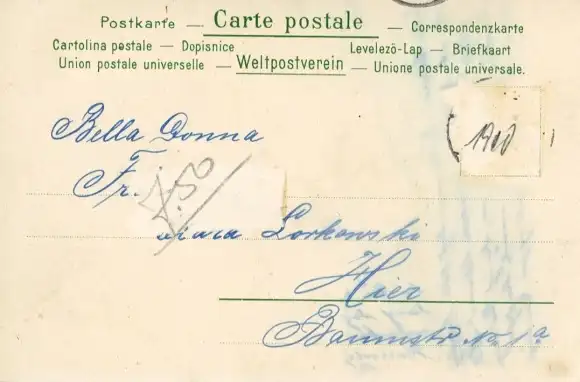 Postkarte — Carte postale — Correspondenzkarte
Cartolina postale — Dopisnice Levelező-Lap — Briefkaart
Union postale universelle — Weltpostverein — Unione postale universale.
Bella Donna
Fr.
7.50
1900
Lorkowski
Hier
Baumstr No 1a